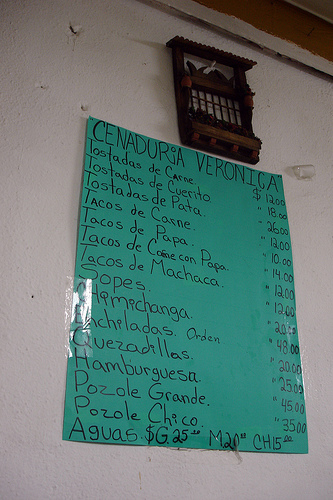 CENADURiA VERONICA
Tostadas de Carne. $ 12.00
Tostadas de Cuerito " 18.00
Tostadas de Pata. " 26.00
Tacos de Carne. " 12.00
Tacos de Papa. " 10.00
Tacos de Carne con Papa. " 14.00
Tacos de Machaca. " 12.00
Sopes. " 12.00
Chemichanga. " 20.00
Enchiladas. Orden " 48.00
Quezadillas. " 20.00
Hamburguesa. " 25.00
Pozole Grande. " 45.00
Pozole Chico. " 35.00
Aguas. $G.25.00 M20.00 CH15.00